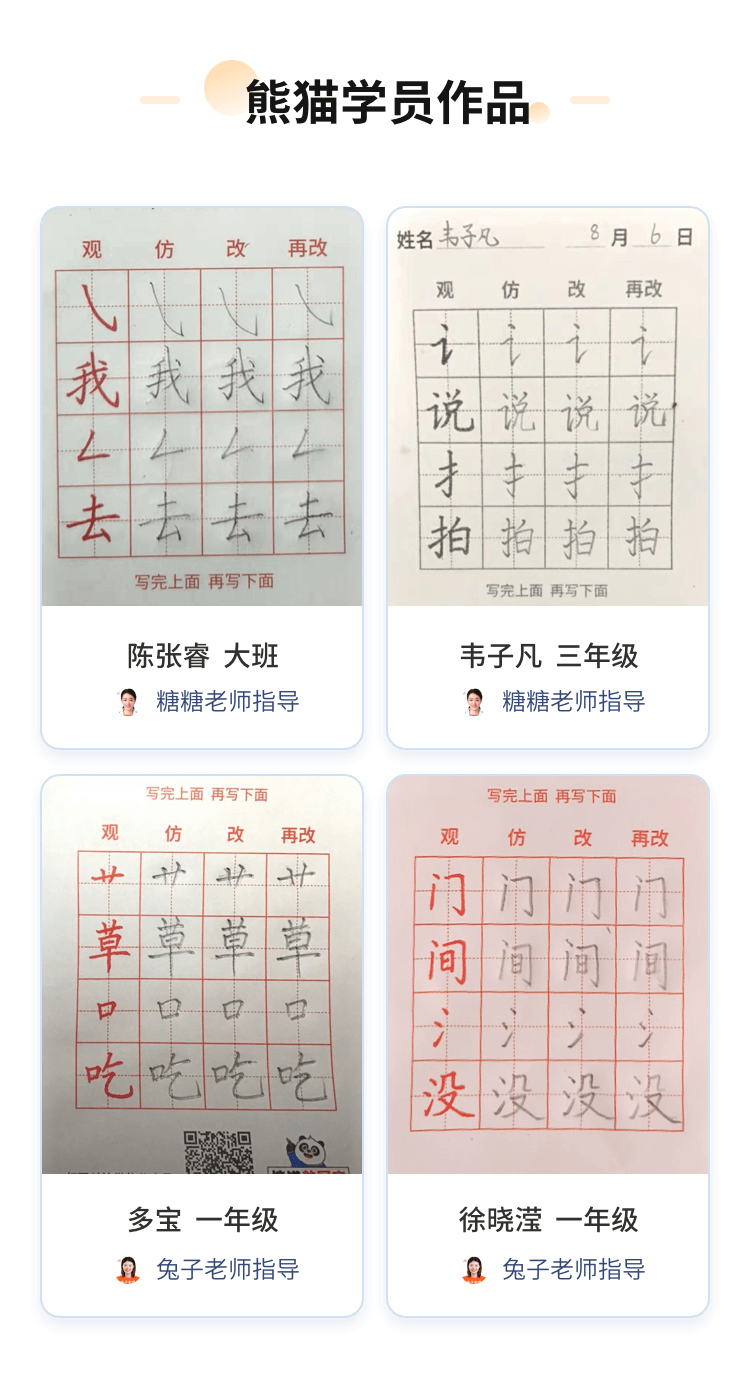 熊猫学员作品
观 仿 改 再改
㇂ ㇂ ㇂ ㇂
我 我 我 我
𠃋 𠃋 𠃋 𠃋
去 去 去 去
写完上面 再写下面
陈张睿 大班
糖糖老师指导
姓名 韦子凡 8 月 6 日
观 仿 改 再改
讠 讠 讠 讠
说 说 说 说
扌 扌 扌 扌
拍 拍 拍 拍
写完上面 再写下面
韦子凡 三年级
糖糖老师指导
写完上面 再写下面
观 仿 改 再改
艹 艹 艹 艹
草 草 草 草
口 口 口 口
吃 吃 吃 吃
多宝 一年级
兔子老师指导
写完上面 再写下面
观 仿 改 再改
门 门 门 门
间 间 间 间
氵 氵 氵 氵
没 没 没 没
徐晓滢 一年级
兔子老师指导